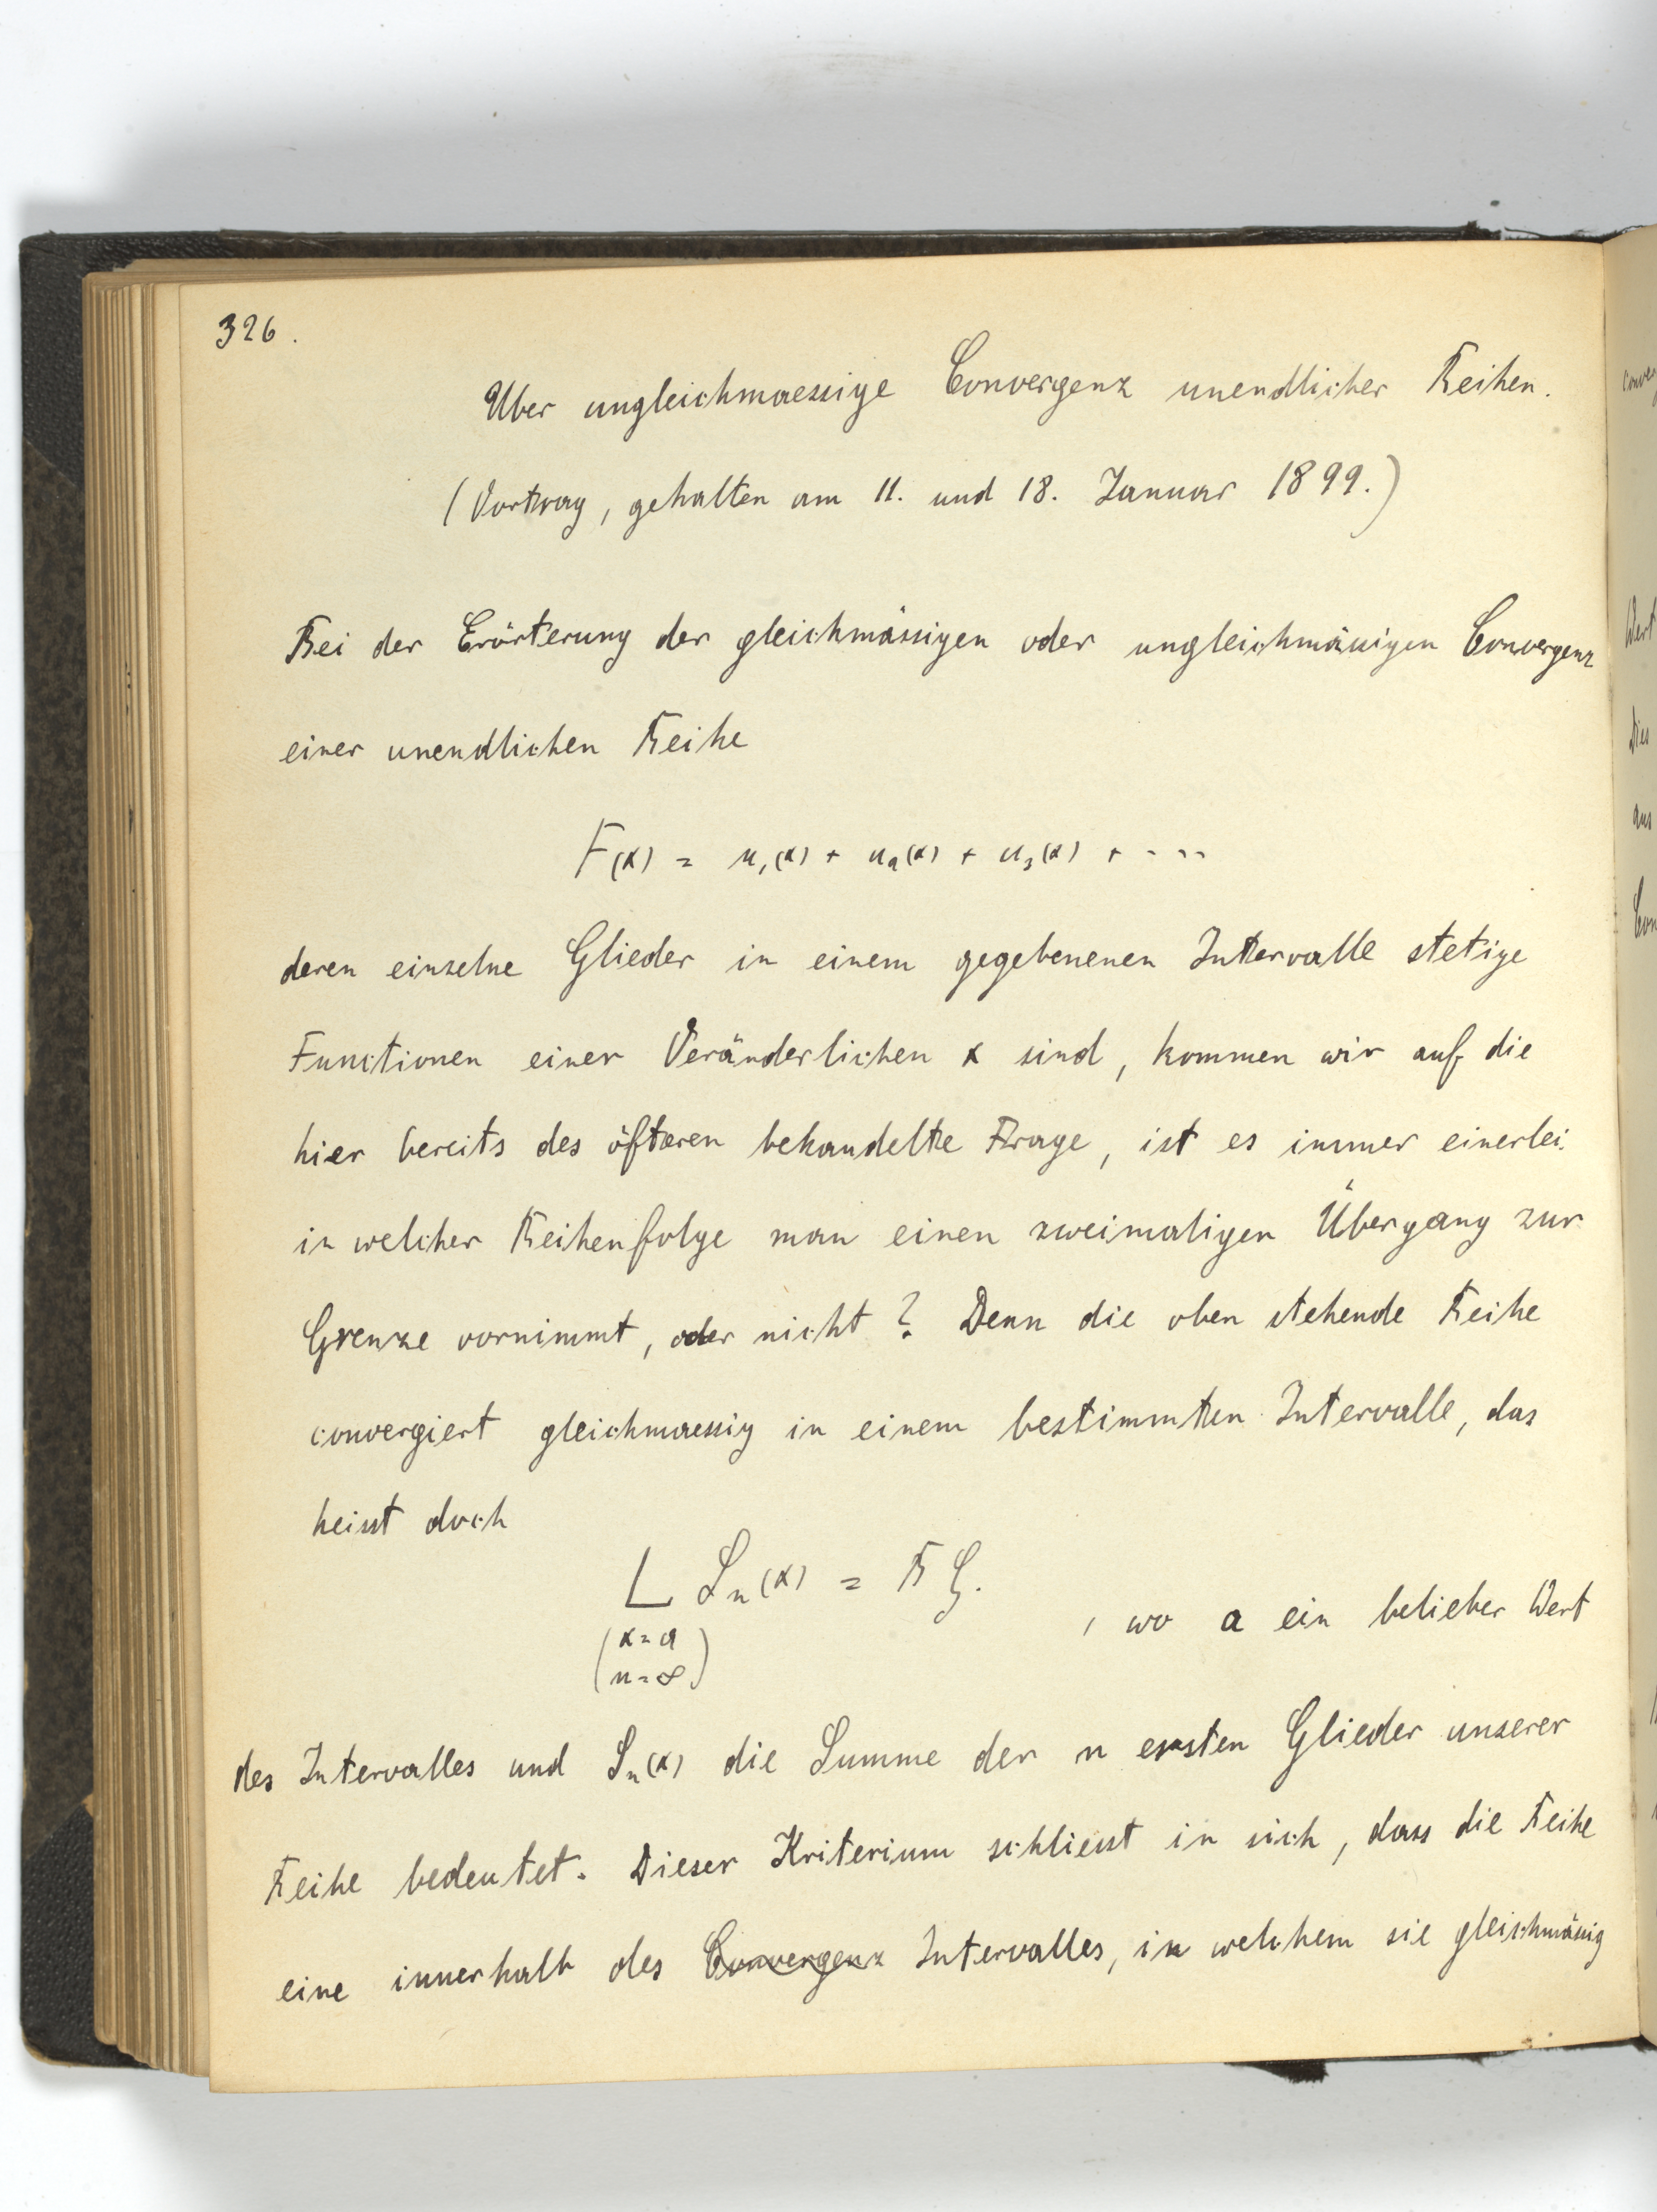 326.
Über ungleichmaessige Convergenz unendlicher Reihen.
(Vortrag, gehalten am 11. und 18. Januar 1899.)
Bei der Erörterung der gleichmässigen oder ungleichmässigen Convergenz
einer unendlichen Reihe
F(x) = u₁(x) + u₂(x) + u₃(x) + ....
deren einzelne Glieder in einem gegebenenen Intervalle stetige
Functionen einer Veränderlichen x sind, kommen wir auf die
hier bereits des öfteren behandelte Frage, ist es immer einerlei
in welcher Reihenfolge man einen zweimaligen Übergang zur
Grenze vornimmt, oder nicht? Denn die oben stehende Reihe
convergiert gleichmaessig in einem bestimmten Intervalle, das
heisst doch
L Sₙ(x) = B G.
(x=a
n=∞) , wo a ein belieber Wert
des Intervalles und Sₙ(x) die Summe der n ersten Glieder unserer
Reihe bedeutet. Dieser Kriterium schliesst in sich, dass die Reihe
eine innerhalb des Convergenz Intervalles, in welchem sie gleichmässig
Wert
Dies
aus